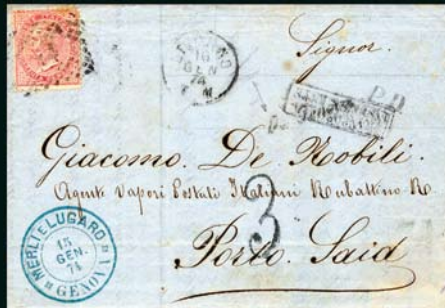 Signor
16
GEN
74
P.D.
Giacomo De Nobili
Agente Vapori Postali Italiani Rubattino
3
Porto Said
MERLI E LUGARO
15
GEN.
74
GENOVA